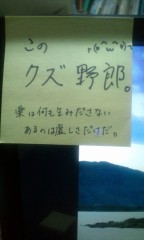 この ヾ(*^ω^*)ﾉ
クズ野郎。
楽は何も生みださない
あるのは虚しさだけだ。